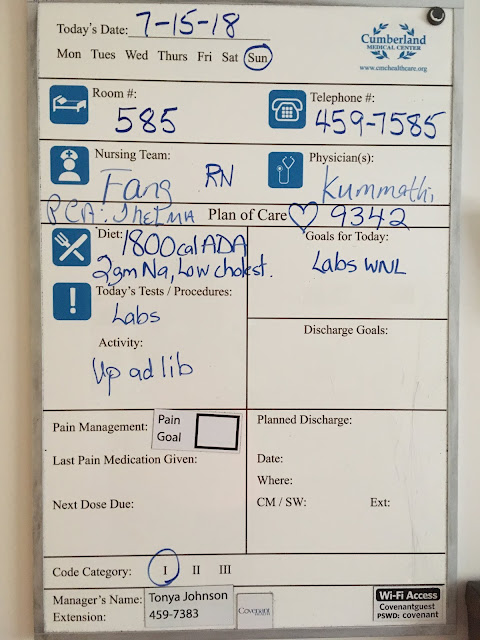 Today's Date: 7-15-18
Cumberland
MEDICAL CENTER
www.cmchealthcare.org
Mon Tues Wed Thurs Fri Sat Sun
Room #:
585
Telephone #:
459-7585
Nursing Team:
Fang RN
PCA: Thelma
Physician(s):
Kummathi
Plan of Care ♡ 9342
Diet: 1800cal ADA
2gm Na, Low cholest.
Goals for Today:
Labs WNL
Today's Tests / Procedures:
Labs
Discharge Goals:
Activity:
Up ad lib
Pain Management: Pain
Goal
Planned Discharge:
Last Pain Medication Given:
Date:
Where:
Next Dose Due:
CM / SW: Ext:
Code Category: I II III
Manager's Name: Tonya Johnson
Extension: 459-7383
Covenant
Wi-Fi Access
Covenantguest
PSWD: covenant